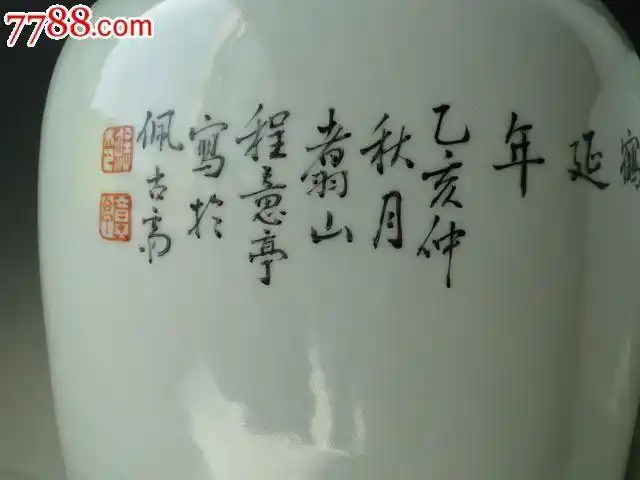 7788.com
延
年
乙亥仲
秋月
翥山
程意亭
寫於
佩古斋